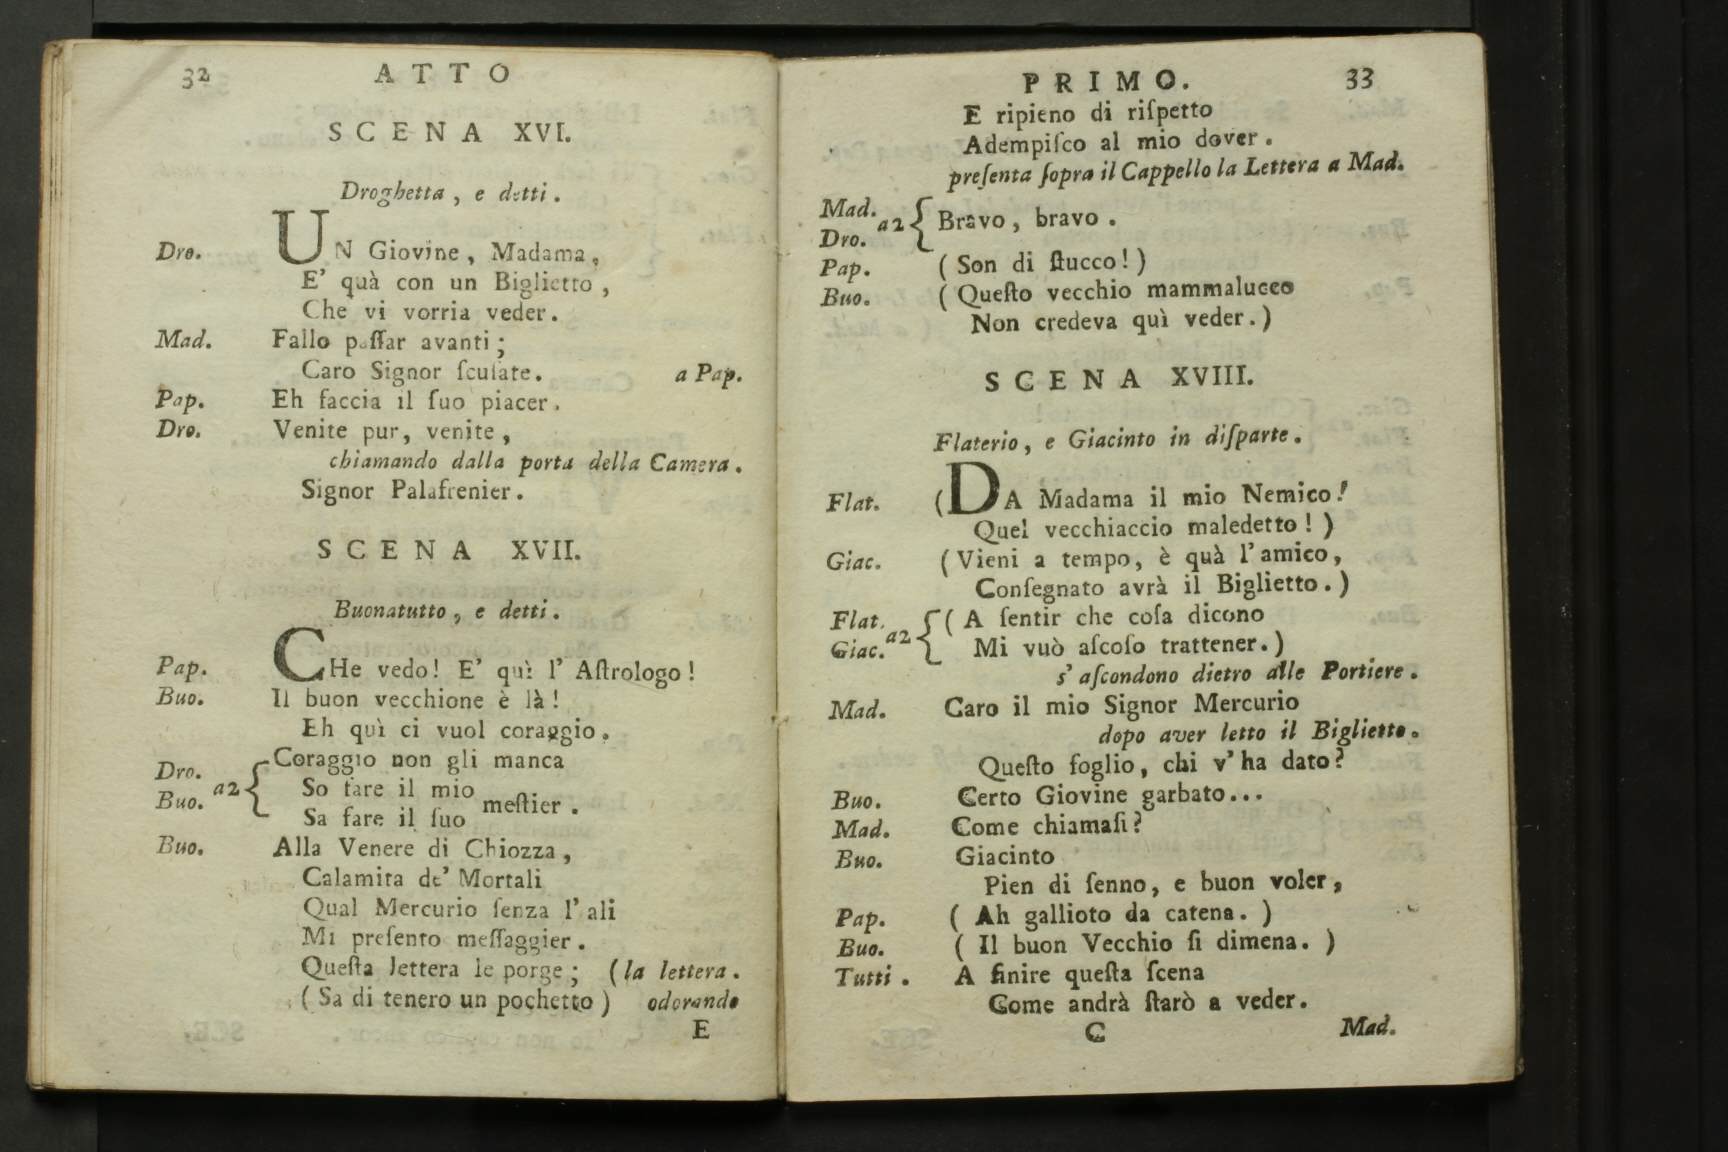 32 ATTO
SCENA XVI.
Droghetta, e detti.
Dro. UN Giovine, Madama,
E' quà con un Biglietto,
Che vi vorria veder.
Mad. Fallo paſſar avanti;
Caro Signor ſcuſate. a Pap.
Pap. Eh faccia il ſuo piacer.
Dro. Venite pur, venite,
chiamando dalla porta della Camera.
Signor Palafrenier.
SCENA XVII.
Buonatutto, e detti.
Pap. CHe vedo! E' quì l' Aſtrologo!
Buo. Il buon vecchione è là!
Eh quì ci vuol coraggio.
Dro. Buo. a2 { Coraggio non gli manca
So fare il mio
Sa fare il ſuo meſtier.
Buo. Alla Venere di Chiozza,
Calamita de' Mortali
Qual Mercurio ſenza l' ali
Mi preſento meſſaggier.
Queſta lettera le porge; (la lettera.
(Sa di tenero un pochetto) odorando
E
PRIMO. 33
E ripieno di riſpetto
Adempiſco al mio dover.
preſenta ſopra il Cappello la Lettera a Mad.
Mad. Dro. a2 { Bravo, bravo.
Pap. (Son di ſtucco!)
Buo. (Queſto vecchio mammalucco
Non credeva quì veder.)
SCENA XVIII.
Flaterio, e Giacinto in diſparte.
Flat. (DA Madama il mio Nemico!
Quel vecchiaccio maledetto!)
Giac. (Vieni a tempo, è quà l' amico,
Conſegnato avrà il Biglietto.)
Flat. Giac. a2 { (A ſentir che coſa dicono
Mi vuò aſcoſo trattener.)
s' aſcondono dietro alle Portiere.
Mad. Caro il mio Signor Mercurio
dopo aver letto il Biglietto.
Queſto foglio, chi v' ha dato?
Buo. Certo Giovine garbato...
Mad. Come chiamaſi?
Buo. Giacinto
Pien di ſenno, e buon voler,
Pap. (Ah gallioto da catena.)
Buo. (Il buon Vecchio ſi dimena.)
Tutti. A finire queſta ſcena
Come andrà ſtarò a veder.
C Mad.